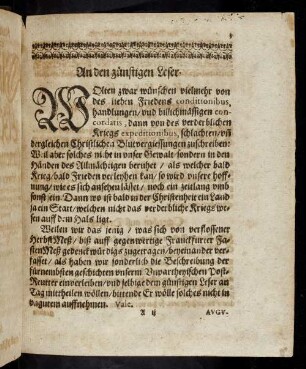 An den günstigen Leser.
WOlten zwar wünschen vielmehr von
des lieben Friedens conditionibus,
handlungen / vnd billichmässigen con-
cordatis, dann von des verderblichen
Kriegs expeditionibus, schlachten / vñ
dergleichen Christliche Bluovergiessungen zuschreiben:
Weil aber solches nicht in vnser Gewalt / sondern in den
Händen des Allmächtigen beruhet / als welcher bald
Krieg / bald Frieden verleyhen kan / so wird vnsere hoff-
nung / wie es sich ansehen lässet / noch ein zeitlang vmb
sonst sein. Dann wo ist bald in der Christenheit ein Land
ja ein Statt / welchen nicht das verderbliche Kriegs we-
sen auff dem Hals ligt.
Weilen wir das jenig / was sich von verflossener
Herbst Meß / biß auff gegenwertige Franckfurter Fa-
sten Meß gedenckwürdigs zugetragen / beyeinander ver-
fasset / als haben wir sonderlich die Beschreibung der
fürnembsten geschichten vnserm Vnpartheyischen Post-
Reutter einverleiben / vnd selbige dem günstigen Leser an
Tag mittheilen wöllen / bittende Er wölle solches nicht in
vngutem auffnehmen. Vale.
A ij
AVGV-